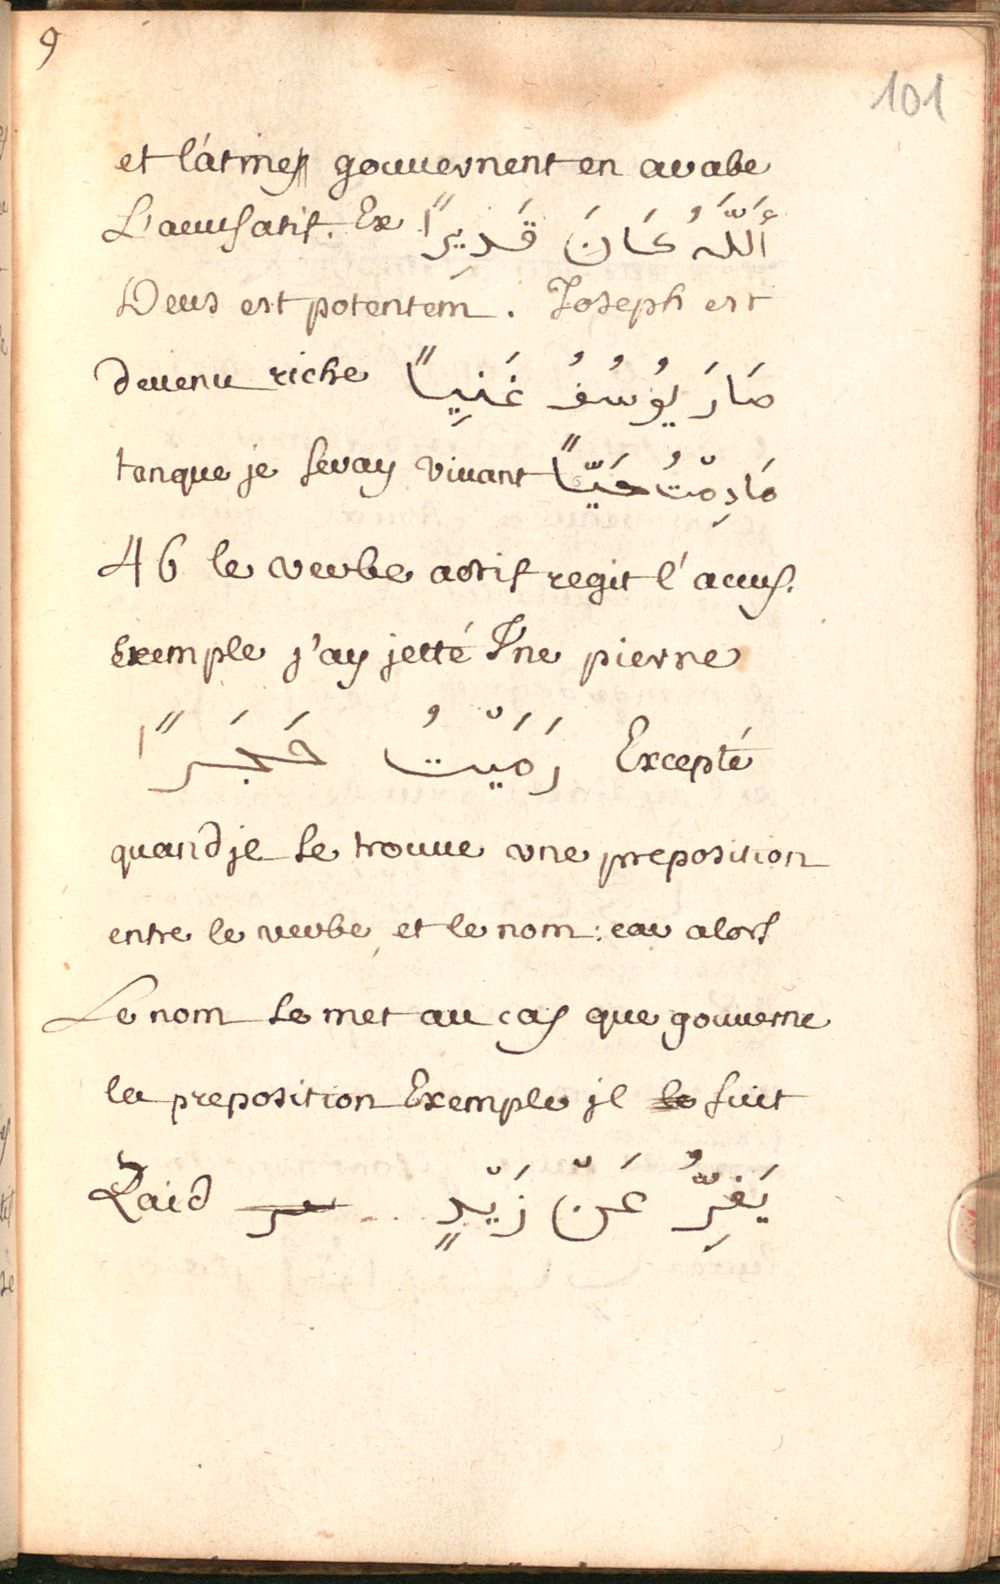 9
101
et látines gouuernent en arabe
L'accusatif. Ex أَللَّهُ كَانَ قَدِيرًا
Deus est potentem. Joseph est
deuenu riche صَارَ يُوسُفُ غَنِيًا
tanque je seray viuant مَادِمْتُ حَيًّا
46 le verbe actif regit l'accus.
Exemple j'ay jetté Vne pierre
رَمَيْتُ حَجَرًا Excepté
quand je se trouue vne preposition
entre le verbe et le nom: car alors
Le nom se met au cas que gouuerne
la preposition Exemple jl le fuit
Zaid يَفِرُّ عَنْ زَيْدٍ